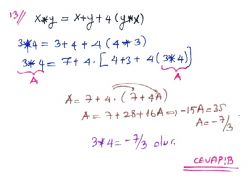 13// x*y = x+y+4(y*x)
3*4 = 3+4+4(4*3)
3*4 = 7+4·[4+3+4(3*4)]
A A
A = 7+4·(7+4A)
A = 7+28+16A ⇒ -15A = 35
A = -7/3
3*4 = -7/3 olur.
CEVAP: B